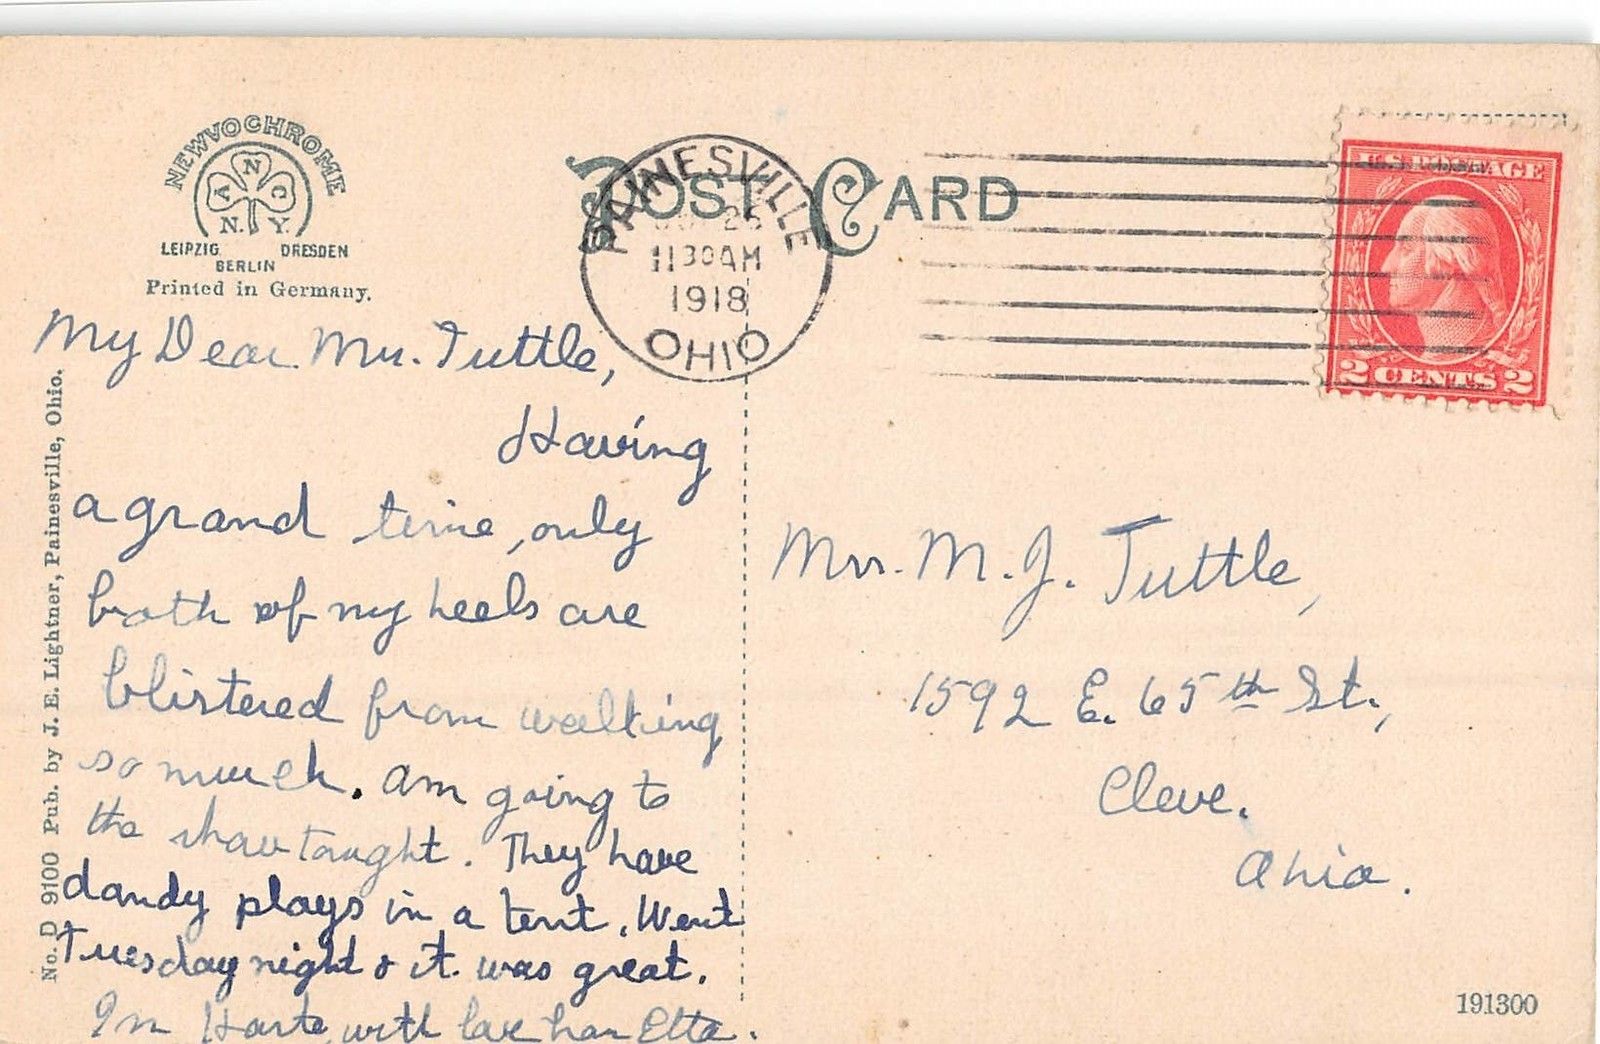 NEWVOCHROME
A N C
N.Y.
LEIPZIG DRESDEN
BERLIN
Printed in Germany.
POST CARD
PAINESVILLE
26
11 30 AM
1918
OHIO
U.S. POSTAGE
2 CENTS 2
My Dear Mrs. Tuttle,
Having
a grand time, only
both of my heels are
blistered from walking
so much. Am going to
the show tonight. They have
dandy plays in a tent. Went
Tuesday night & it was great.
In Haste, with love from Etta.
Mrs. M. J. Tuttle,
1592 E. 65th St.,
Cleve.
Ohio.
No. D 9100 Pub. by J. E. Lightner, Painesville, Ohio.
191300